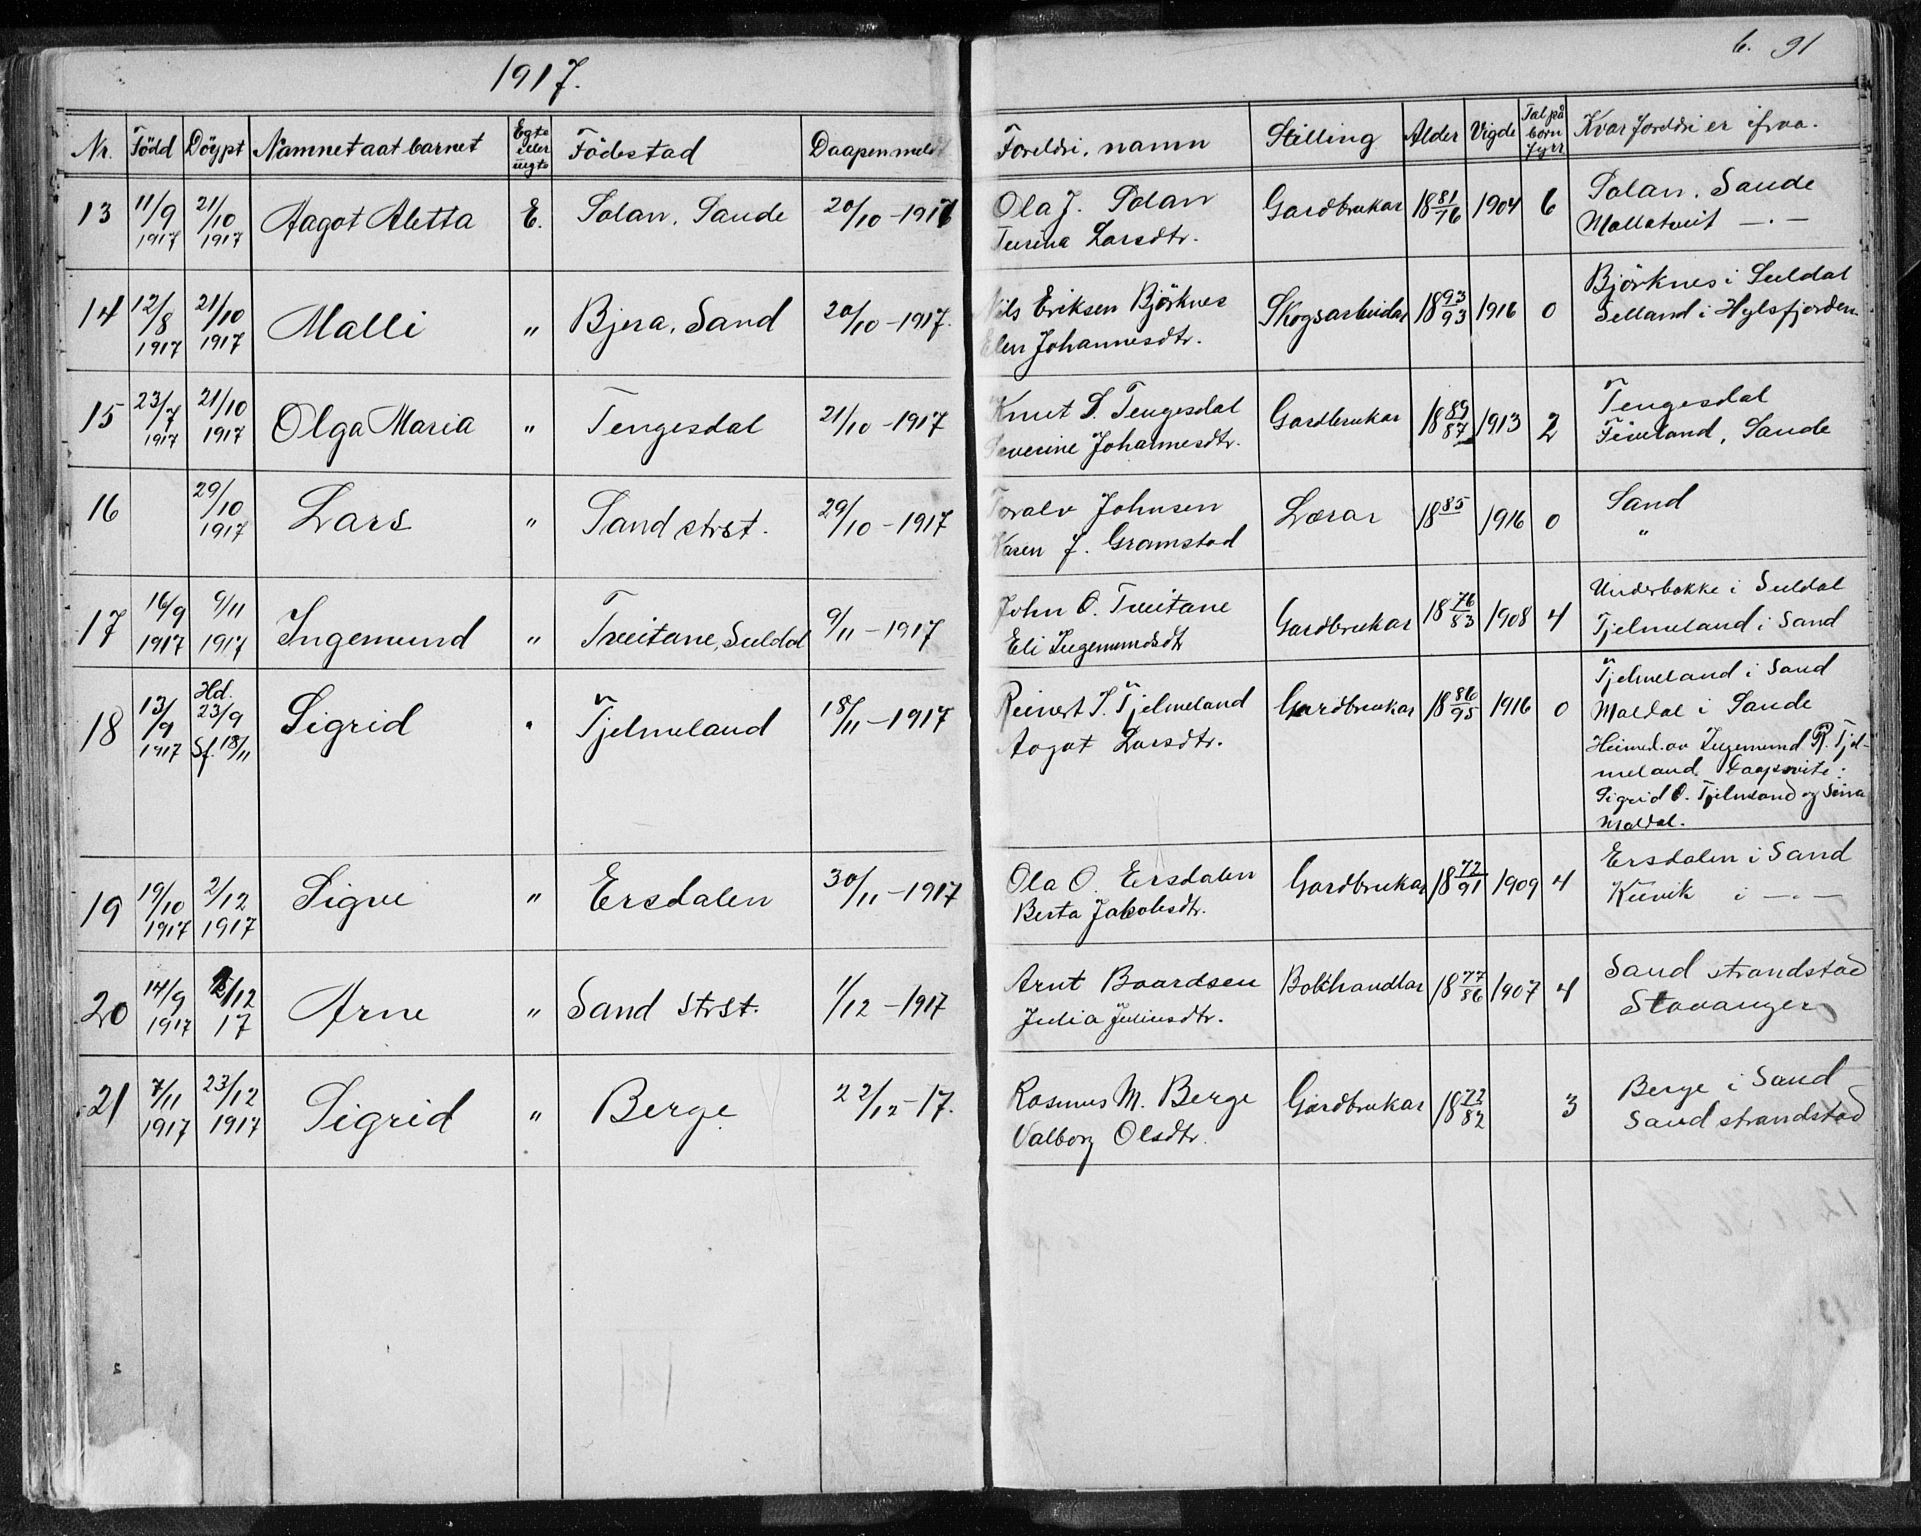 1917.
6. 91
Nr. Född Döypt Namnet aat barnet Egte eller uegte Födestad Daapen meldt Foreldri, namn Stilling Alder Vigde Tal på born fyrr Kvar foreldri er ifraa.
13 11/9 1917 21/10 1917 Aagot Aletta E. Solan, Saude 20/10 - 1917 Ola J. Solan Gardbrukar 18 81/76 1904 6 Solan, Saude
Larsdtr. — . —
14 12/8 1917 21/10 1917 Malli " Bjera, Sand 20/10 - 1917. Nils Eriksen Björknes Skogsarbeidar 18 93/93 1916 0 Björknes i Suldal
Elen Johannesdtr. Selland i Hylsfjorden
15 23/7 1917 21/10 1917 Olga Maria " Tengesdal 21/10 - 1917 Knut S. Tengesdal Gardbrukar 18 89/87 1913 2 Tengesdal
Severine Johannesdtr. Fiveland, Saude
16 29/10 1917 Lars " Sand strst. 29/10 - 1917 Toralv Johnsen Lærar 18 85 1916 0 Sand
Karen J. Gramstad "
17 16/9 1917 9/11 1917 Ingemund " Tveitane, Suldal 9/11 - 1917 John O. Tveitane Gardbrukar 18 76/83 1908 4 Underbakke i Suldal
Eli Ingemundsdtr Tjelmeland i Sand
18 13/9 1917 Hd. 23/9 Sf. 18/11 Sigrid " Tjelmeland 18/11 - 1917 Reinert I. Tjelmeland Gardbrukar 18 86/95 1916 0 Tjelmeland i Sand
Aagot Larsdtr. Maldal i Saude
Heimed. av Ingemund R. Tjel-
meland. Daapsvitj:
Sigrid O. Tjelmeland og
Maldal.
19 19/10 1917 2/12 1917 Sigve " Ersdalen 30/11 - 1917 Ola O. Ersdalen Gardbrukar 18 72/91 1909 4 Ersdalen i Sand
Berta Jakobsdtr. Kvivik i — . —
20 14/9 1917 2/12 17 Arne " Sand strst. 1/12 - 1917 Arnt Baardsen Bokhandlar 18 77/86 1907 4 Sand strandstad
Julia Juliusdtr. Stavanger
21 7/11 1917 23/12 1917 Sigrid " Berge 22/12 - 17. Rasmus M. Berge Gardbrukar 18 72/82 3 Berge i Sand
Valborg Olsdtr. Sand strandstad